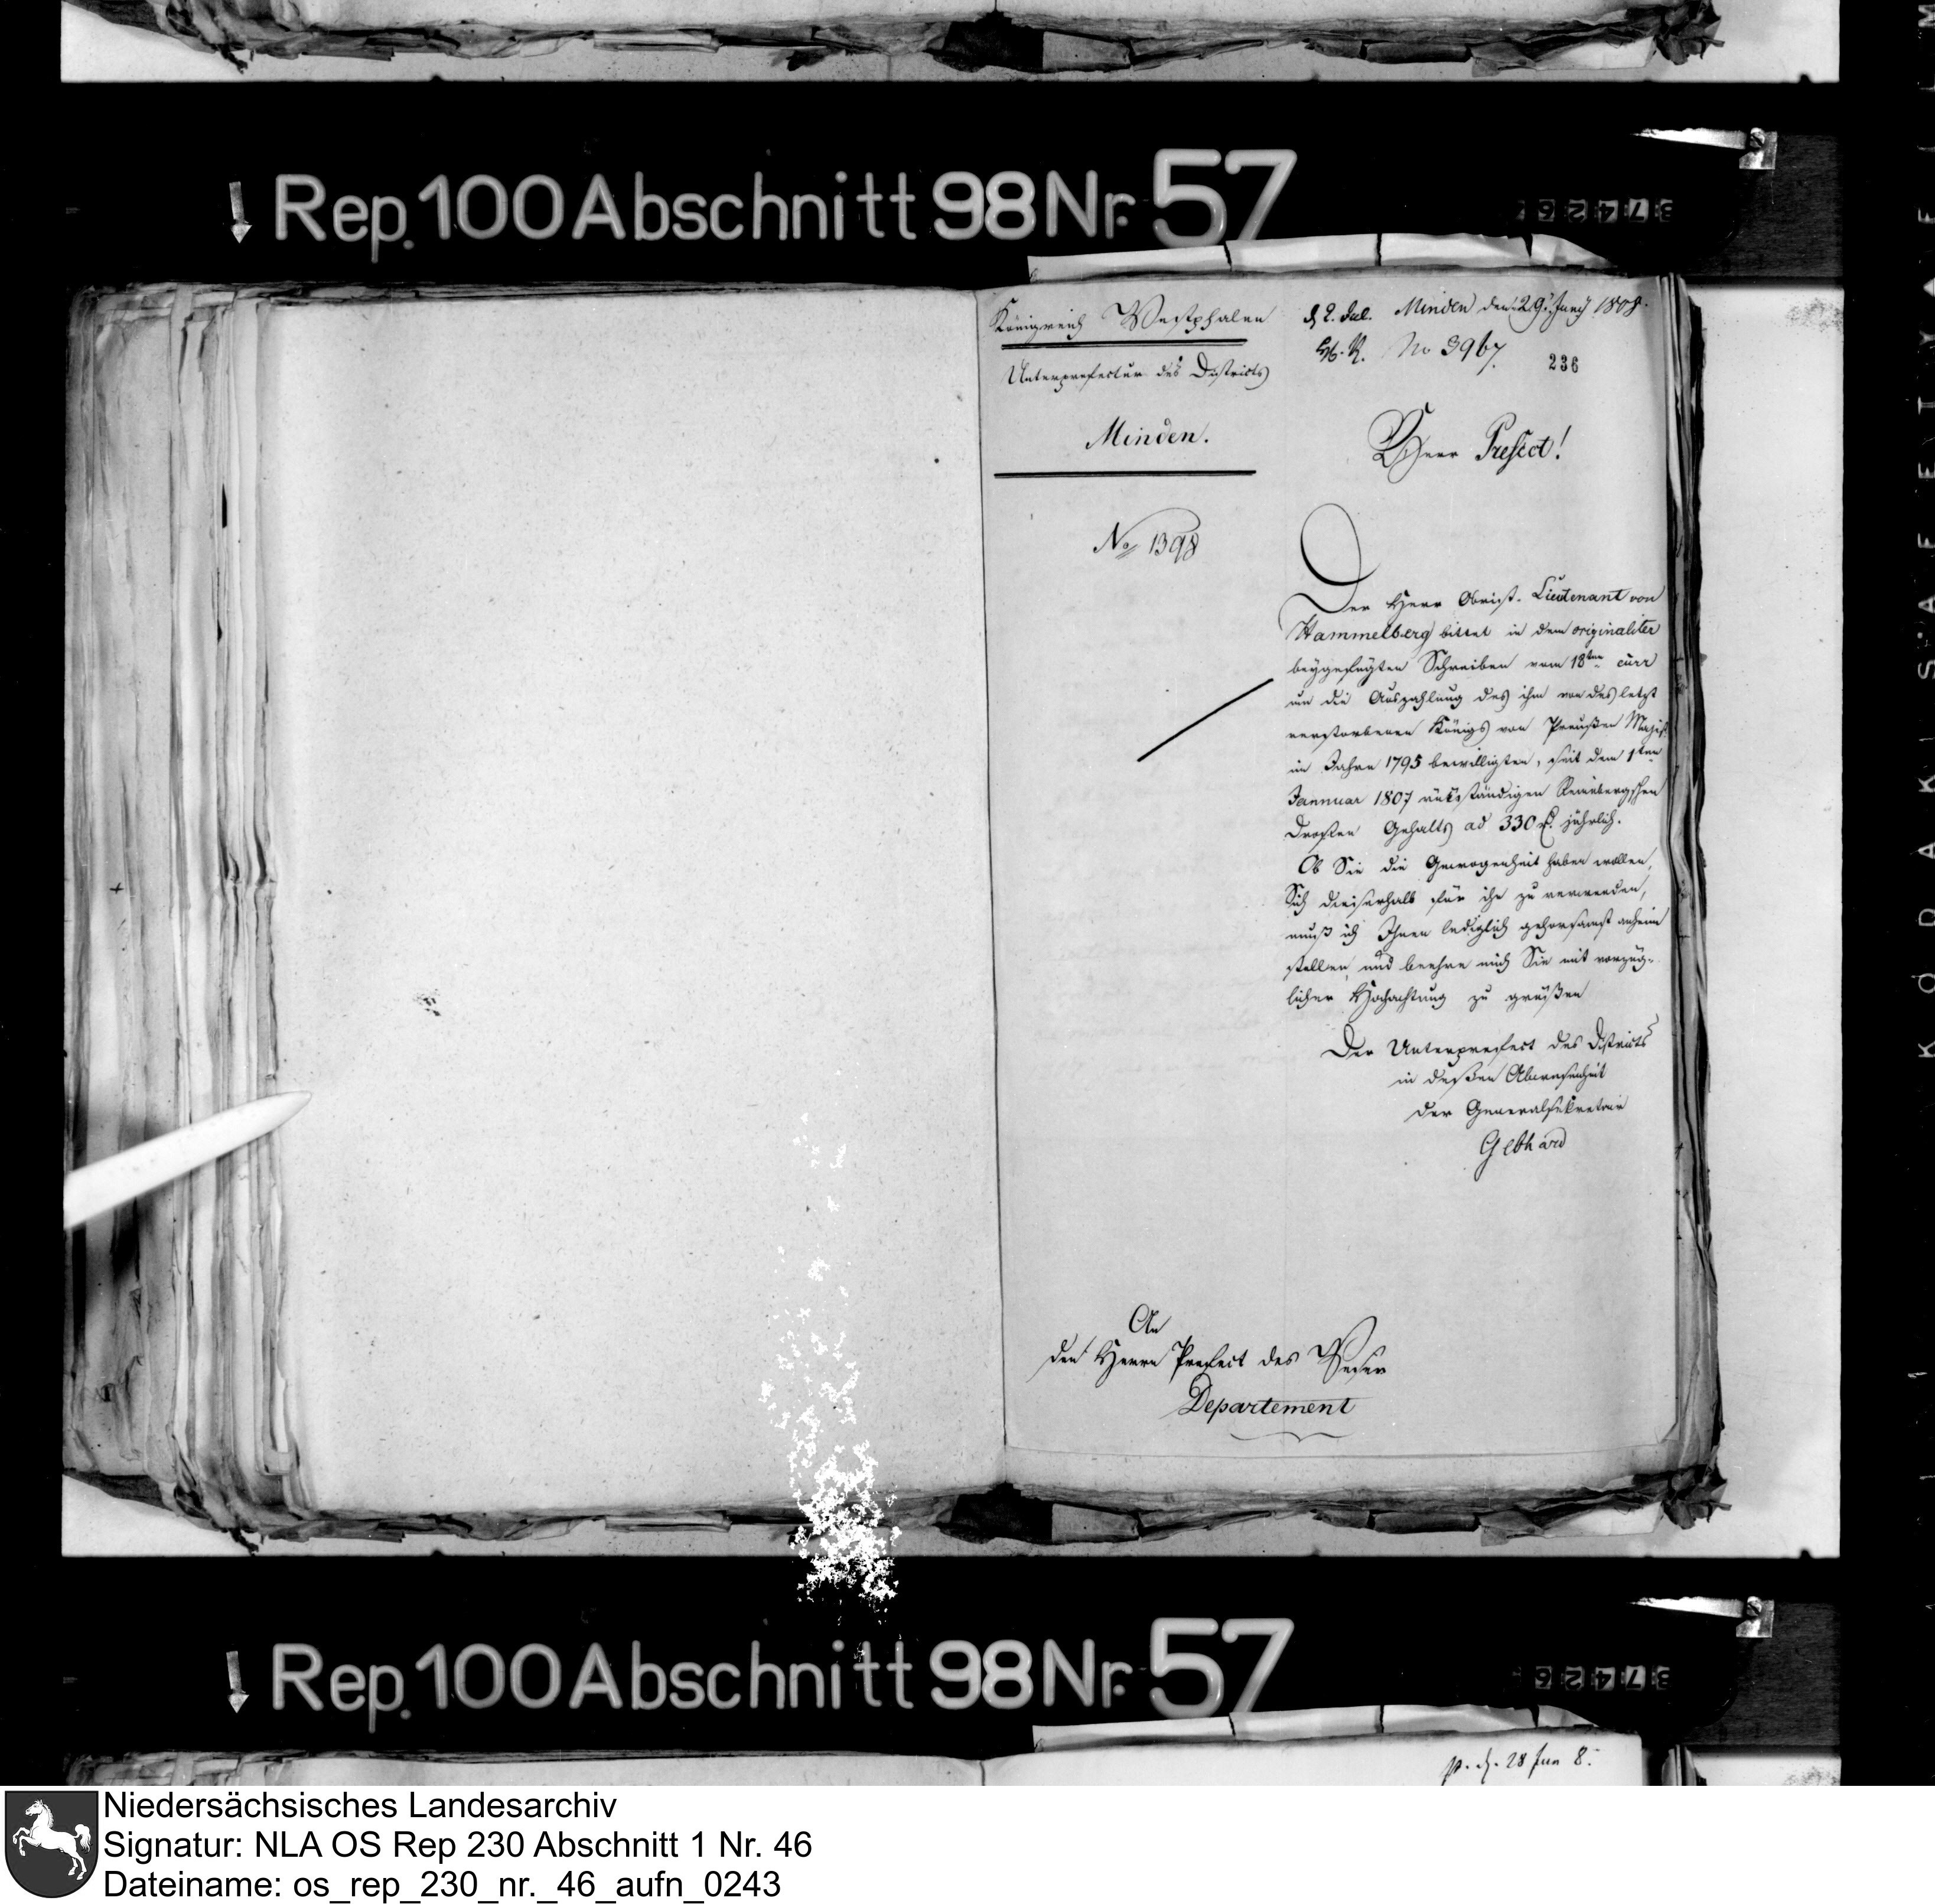 Rep. 100 Abschnitt 98 Nr. 57
Königreich Westphalen
Unterprefectur des Districts
Minden.
No 1398
Minden den 29. Juny 1808.
No 3967.
236
Herr Prefect!
Der Herr Obrist-Lieutenant von
Hammelberg bittet in dem originaliter
beygefügten Schreiben vom 18ten curr
um die Auszahlung des ihm von des letzt
verstorbenen Königs von Preußen Majest.
im Jahre 1795 bewilligten, seit dem 1ten
Januar 1807 rükständigen Reinebergschen
Drosten Gehalts ad 330 jährlich.
Ob Sie die Gewogenheit haben wollen,
Sich dieserhalb für ihn zu verwenden,
muß ich Ihnen lediglich gehorsamst anheim
stellen, und beehre mich Sie mit vorzüg-
licher Hochachtung zu grüßen
Der Unterprefect des Districts
in deßen Abwesenheit
der Generalsekretair
Gebhard
An
den Herrn Prefect des Weser
Departement
Rep. 100 Abschnitt 98 Nr. 57
28 Jun 8.
Niedersächsisches Landesarchiv
Signatur: NLA OS Rep 230 Abschnitt 1 Nr. 46
Dateiname: os_rep_230_nr._46_aufn_0243